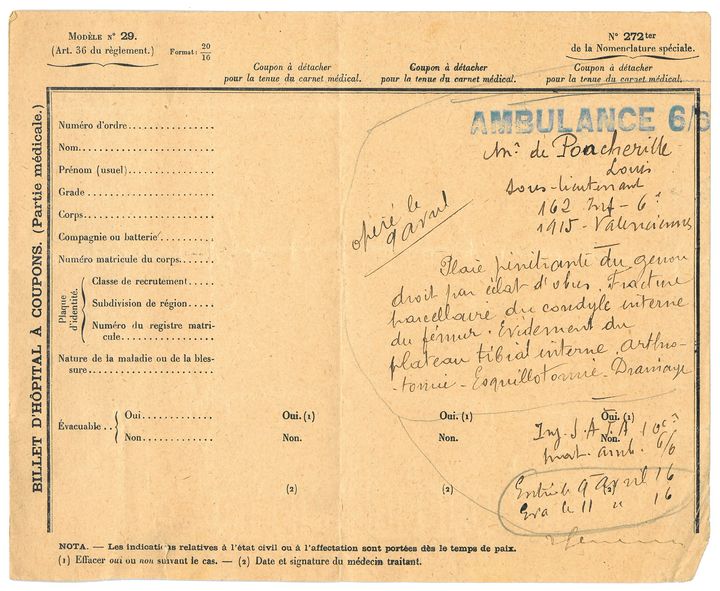 MODÈLE N° 29.
(Art. 36 du règlement.)
Format: 20/16
N° 272ter
de la Nomenclature spéciale.
Coupon à détacher
pour la tenue du carnet médical.
Coupon à détacher
pour la tenue du carnet médical.
Coupon à détacher
pour la tenue du carnet médical.
BILLET D'HÔPITAL À COUPONS. (Partie médicale.)
Numéro d'ordre
Nom
Prénom (usuel)
Grade
Corps
Compagnie ou batterie
Numéro matricule du corps
Plaque d'identité.
Classe de recrutement
Subdivision de région
Numéro du registre matri-
cule
Nature de la maladie ou de la bles-
sure
Évacuable ..
Oui
Non
Oui. (1)
Non.
(2)
Oui. (1)
Non.
(2)
Oui. (1)
Non.
(2)
AMBULANCE 6/6
Mr de Poncherille
Louis
sous-lieutenant
162 Inf - 6e
1915 - Valenciennes
opéré le
9 avril
Plaie pénétrante du genou
droit par éclat d'obus. Fracture
parcellaire du condyle interne
du fémur. Evidement du
plateau tibial interne. arthro-
tomie - Esquillotomie - Drainage
Inj. S. A. T. A 10cc
mat. amb. 6/6
Entré le 9 avril 16
Eva le 11 " 16
NOTA. — Les indications relatives à l'état civil ou à l'affectation sont portées dès le temps de paix.
(1) Effacer oui ou non suivant le cas. — (2) Date et signature du médecin traitant.